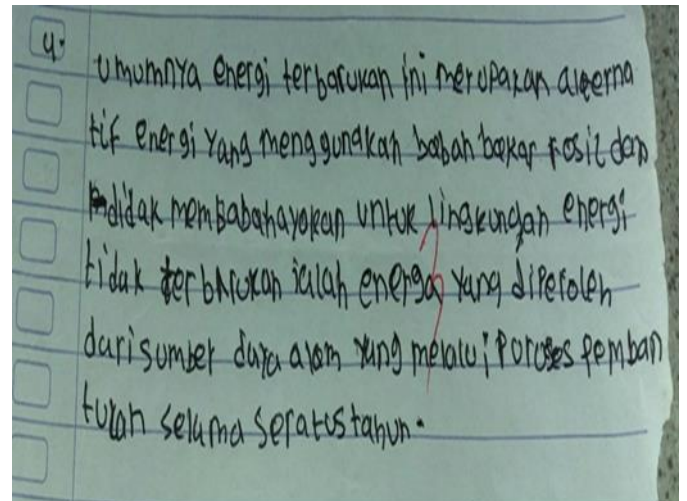 4.
Umumnya energi terbarukan ini merupakan alterna
tif energi yang menggunakan bahan bakar fosil dan
didak membabahayokan untuk lingkungan energi
tidak terbarukan ialah energa yang diperoleh
dari sumber daya alam yang melalui poroses pemban
tukan selama seratus tahun.